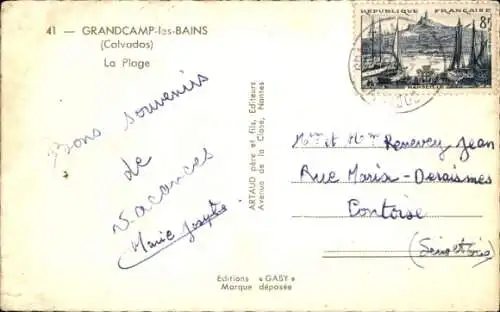 41 — GRANDCAMP-les-BAINS
(Calvados)
La Plage
Bons souvenirs
de
Vacances
Marie Josèphe
ARTAUD père et fils, Editeurs
Avenue de la Close, Nantes
Editions « GABY »
Marque déposée
REPUBLIQUE FRANÇAISE
8F
Mme et Mr Renevey Jean
Rue Maria-Deraismes
Pontoise
(Seine et Oise)